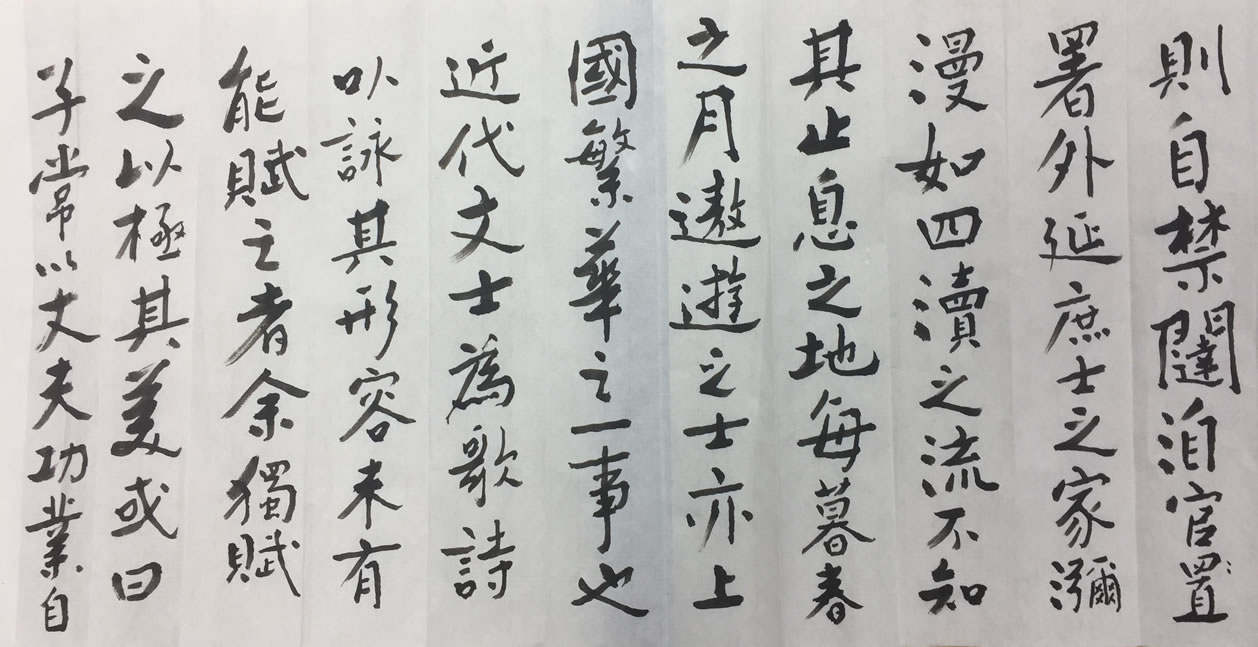 則自禁闥洎官置
署外延庶士之家瀰
漫如四瀆之流不知
其止息之地每暮春
之月遨遊之士亦上
國繁華之一事也
近代文士為歌詩
以詠其形容未有
能賦之者余獨賦
之以極其美或曰
子常以丈夫功業自